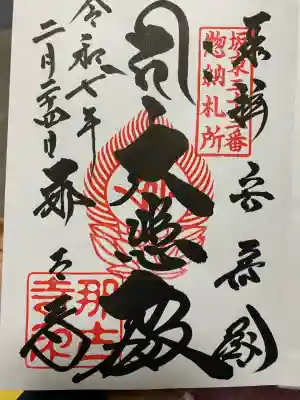 奉拝 安房国
坂東三十三番
惣納札所
大悲殿
令和七年
二月二十四日
那古寺